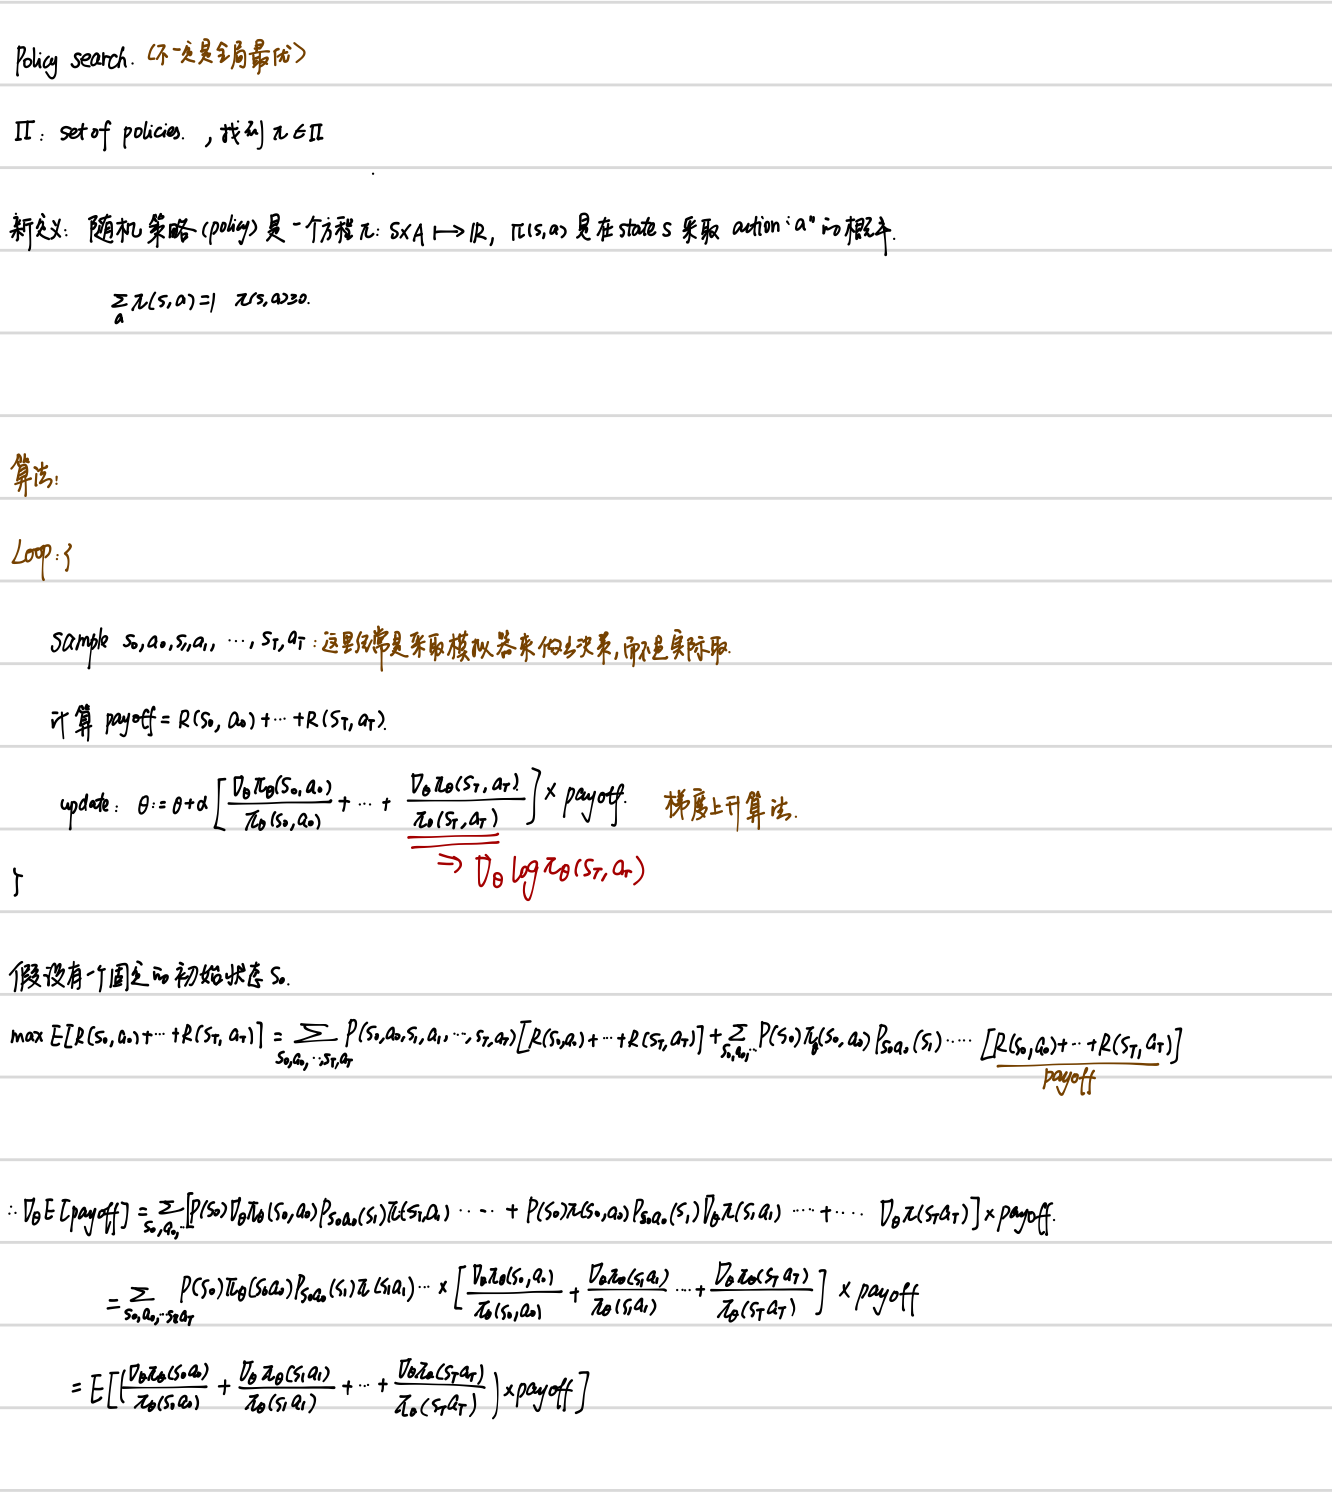 Policy search. (不一定是全局最优)
Π: set of policies. , 找到 π∈Π
新定义: 随机策略(policy) 是一个方程π: S×A ↦ ℝ, π(s,a) 是在state s 采取 action "a" 的概率.
∑_a π(s,a)=1 π(s,a)≥0.
算法:
Loop: {
Sample s₀,a₀,s₁,a₁, ⋯, s_T,a_T : 这里经常是采取模拟器来做出决策,而不是实际取.
计算 payoff = R(s₀,a₀)+⋯+R(s_T,a_T).
update: θ:=θ+α[∇_θπ_θ(s₀,a₀)/π_θ(s₀,a₀) + ⋯ + ∇_θπ_θ(s_T,a_T)/π_θ(s_T,a_T)] × payoff. 梯度上升算法.
⇒ ∇_θ log π_θ(s_T,a_T)
}
假设有一个固定的初始状态 s₀.
max E[R(s₀,a₀)+⋯+R(s_T,a_T)] = ∑_{s₀,a₀,⋯,s_T,a_T} P(s₀,a₀,s₁,a₁,⋯,s_T,a_T)[R(s₀,a₀)+⋯+R(s_T,a_T)] + ∑_{s₀,a₀,⋯} P(s₀)π_θ(s₀,a₀)P_{s₀a₀}(s₁)⋯⋯[R(s₀,a₀)+⋯+R(s_T,a_T)]
payoff
∴ ∇_θE[payoff] = ∑_{s₀,a₀,⋯}[P(s₀)∇_θπ_θ(s₀,a₀)P_{s₀a₀}(s₁)π(s₁,a₁)⋯⋯ + P(s₀)π(s₀,a₀)P_{s₀a₀}(s₁)∇_θπ(s₁a₁)⋯+⋯ ∇_θπ(s_Ta_T)]×payoff.
= ∑_{s₀,a₀,⋯s_Ta_T} P(s₀)π_θ(s₀a₀)P_{s₀a₀}(s₁)π(s₁a₁)⋯ × [∇_θπ_θ(s₀,a₀)/π_θ(s₀,a₀) + ∇_θπ_θ(s₁a₁)/π_θ(s₁a₁) ⋯ + ∇_θπ_θ(s_Ta_T)/π_θ(s_Ta_T)] × payoff
= E[(∇_θπ_θ(s₀a₀)/π_θ(s₀a₀) + ∇_θπ_θ(s₁a₁)/π_θ(s₁a₁) + ⋯ + ∇_θπ_θ(s_Ta_T)/π_θ(s_Ta_T)) × payoff]